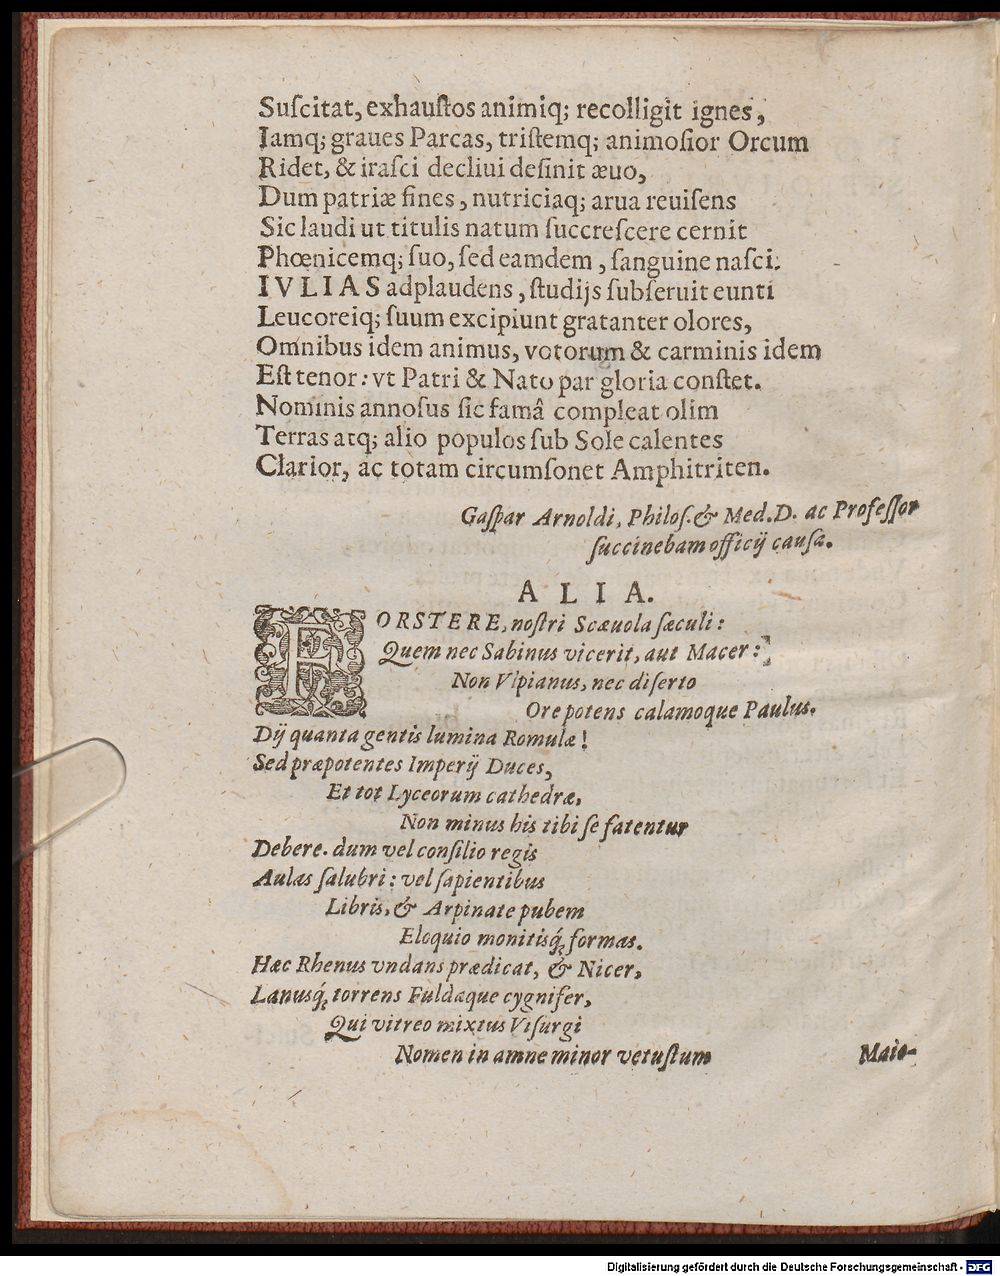 Suſcitat, exhauſtos animiq; recolligit ignes,
Iamq; graues Parcas, triſtemq; animoſior Orcum
Ridet, & iraſci decliui deſinit æuo,
Dum patriæ fines, nutriciaq; arua reuiſens
Sic laudi ut titulis natum ſuccreſcere cernit
Phœnicemq; ſuo, ſed eamdem, ſanguine naſci:
IVLIAS adplaudens, ſtudijs ſubſeruit eunti
Leucoreiq; ſuum excipiunt gratanter olores,
Omnibus idem animus, votorum & carminis idem
Eſt tenor: vt Patri & Nato par gloria conſtet.
Nominis annoſus ſic famâ compleat olim
Terras atq; alio populos ſub Sole calentes
Clarior, ac totam circumſonet Amphitriten.
Gaſpar Arnoldi, Philoſ. & Med. D. ac Profeſſor
ſuccinebam officij cauſa.
ALIA.
FORSTERE, noſtri Scæuola ſæculi:
Quem nec Sabinus vicerit, aut Macer:
Non Vlpianus, nec diſerto
Ore potens calamoque Paulus.
Dij quanta gentis lumina Romulæ!
Sed præpotentes Imperij Duces,
Et tot Lyceorum cathedræ,
Non minus his tibi ſe fatentur
Debere. dum vel conſilio regis
Aulas ſalubri: vel ſapientibus
Libris, & Arpinate pubem
Eloquio monitisq́; formas.
Hæc Rhenus vndans prædicat, & Nicer,
Lanusq́; torrens Fuldaque cygnifer,
Qui vitreo mixtus Viſurgi
Nomen in amne minor vetuſtum
Maio-
Digitalisierung gefördert durch die Deutsche Forschungsgemeinschaft - DFG